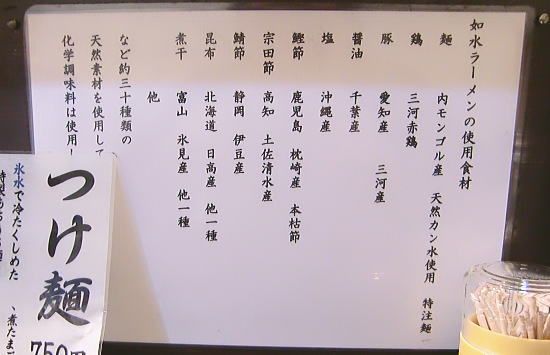 如水ラーメンの使用食材
麺 内モンゴル産 天然カン水使用 特注麺
鶏 三河赤鶏
豚 愛知産 三河産
醤油 千葉産
塩 沖縄産
鰹節 鹿児島 枕崎産 本枯節
宗田節 高知 土佐清水産
鯖節 静岡 伊豆産
昆布 北海道 日高産 他一種
煮干 富山 氷見産 他一種
他
など約三十種類の
天然素材を使用して
化学調味料は使用し
つけ麺
750円
氷水で冷たくしめた
、煮たま